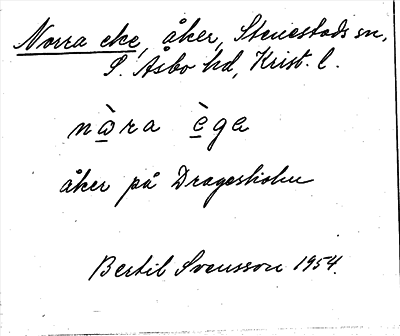 Norra eke, åker, Stenestads sn,
S. Åsbo hd, Krist. l.
nὼra ège
åker på Dragesholm
Bertil Svensson 1954.